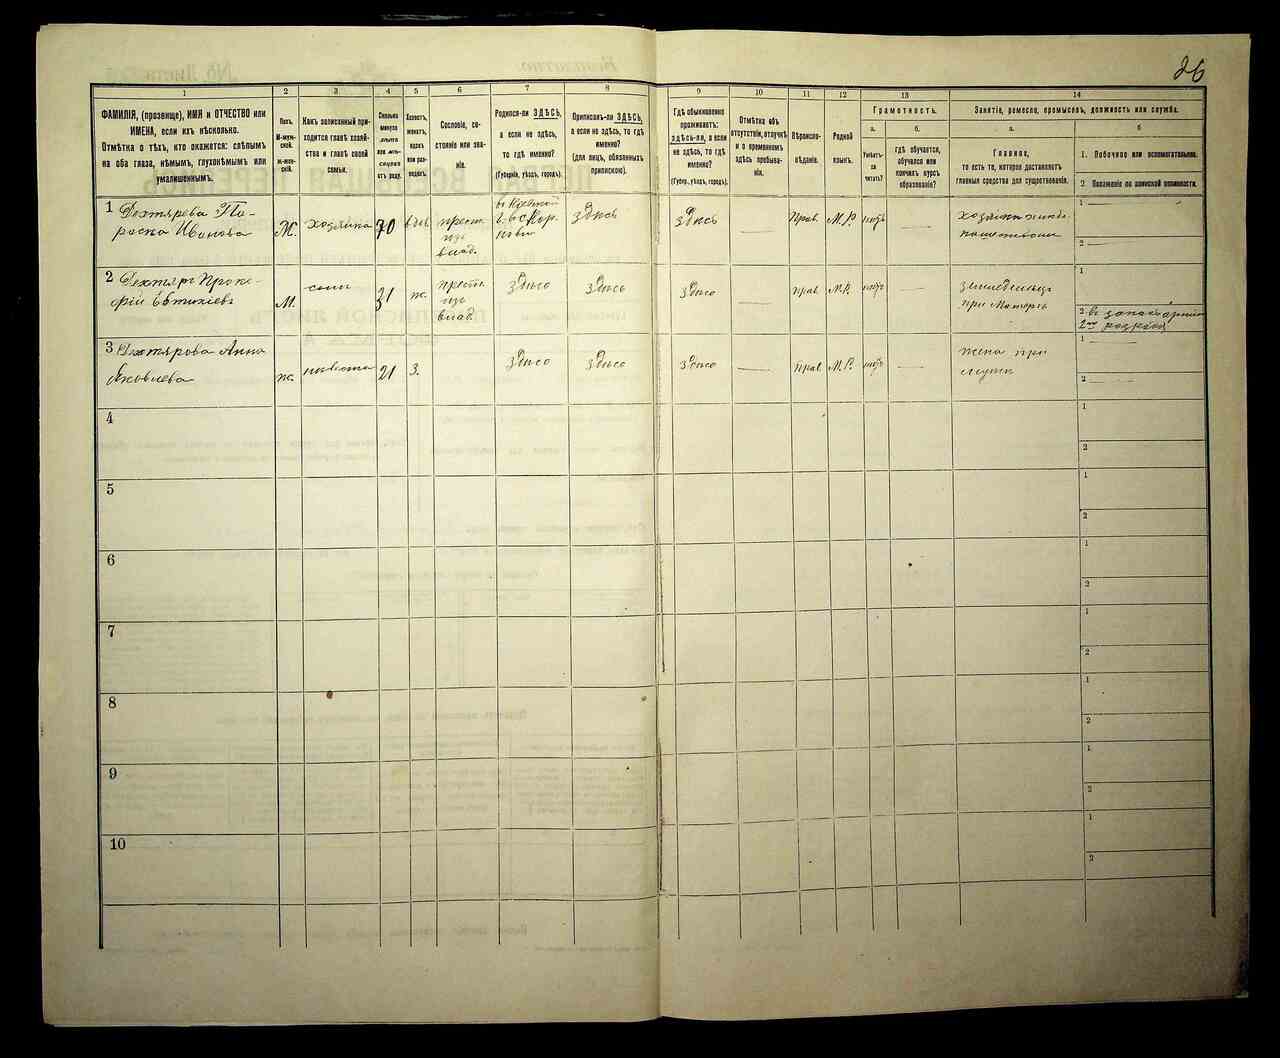 26
1
2
3
4
5
6
7
8
9
10
11
12
13
14
ФАМИЛІЯ, (прозвище), ИМЯ и ОТЧЕСТВО или
ИМЕНА, если ихъ нѣсколько.
Отмѣтка о тѣхъ, кто окажется: слѣпымъ
на оба глаза, нѣмымъ, глухонѣмымъ или
умалишеннымъ.
Полъ.
М-муж-
ской.
Ж-жен-
скій.
Какъ записанный при-
ходится главѣ хозяй-
ства и главѣ своей
семьи.
Сколько
минуло
лѣтъ
или мѣ-
сяцевъ
отъ роду.
Холостъ,
женатъ,
вдовъ
или раз-
веденъ.
Сословіе, со-
стояніе или зва-
ніе.
Родился-ли ЗДѢСЬ,
а если не здѣсь,
то гдѣ именно?
(Губернія, уѣздъ, городъ).
Приписанъ-ли ЗДѢСЬ,
а если не здѣсь, то гдѣ
именно?
(для лицъ, обязанныхъ
припискою).
Гдѣ обыкновенно
проживаетъ:
здѣсь-ли, а если
не здѣсь, то гдѣ
именно?
(Губер., уѣздъ, городъ).
Отмѣтка объ
отсутствіи, отлучкѣ
и о временномъ
здѣсь пребыва-
ніи.
Вѣроиспо-
вѣданіе.
Родной
языкъ.
Грамотность.
а.
б.
Умѣетъ-
ли
читать?
гдѣ обучается,
обучался или
кончилъ курсъ
образованія?
Занятіе, ремесло, промыселъ, должность или служба.
а.
б
Главное,
то есть то, которое доставляетъ
главныя средства для существованія.
1. Побочное или вспомогательное.
2. Положеніе по воинской повинности.
1 Дехтярева Па-
раска Иванова
Ж.
хозяйка
70
вдв.
крест.
изъ
влад.
здѣсь
здѣсь
Прав.
М.Р.
нѣтъ
хозяйка
1
2
2 Дехтярь Проко-
фій Евтихіевъ
М.
сынъ
31
ж.
крестъ.
изъ
влад.
здѣсь
здѣсь
здѣсь
прав.
М.Р.
нѣтъ
земледѣлецъ
при Матери
1
2 въ запасѣ арміи
2го разряда
3 Дехтярова Анна
Яковлева
ж.
невѣстка
21
З.
здѣсь
здѣсь
здѣсь
прав.
М.Р.
нѣтъ
жена при
мужѣ
1
2
4
1
2
5
1
2
6
1
2
7
1
2
8
1
2
9
1
2
10
1
2